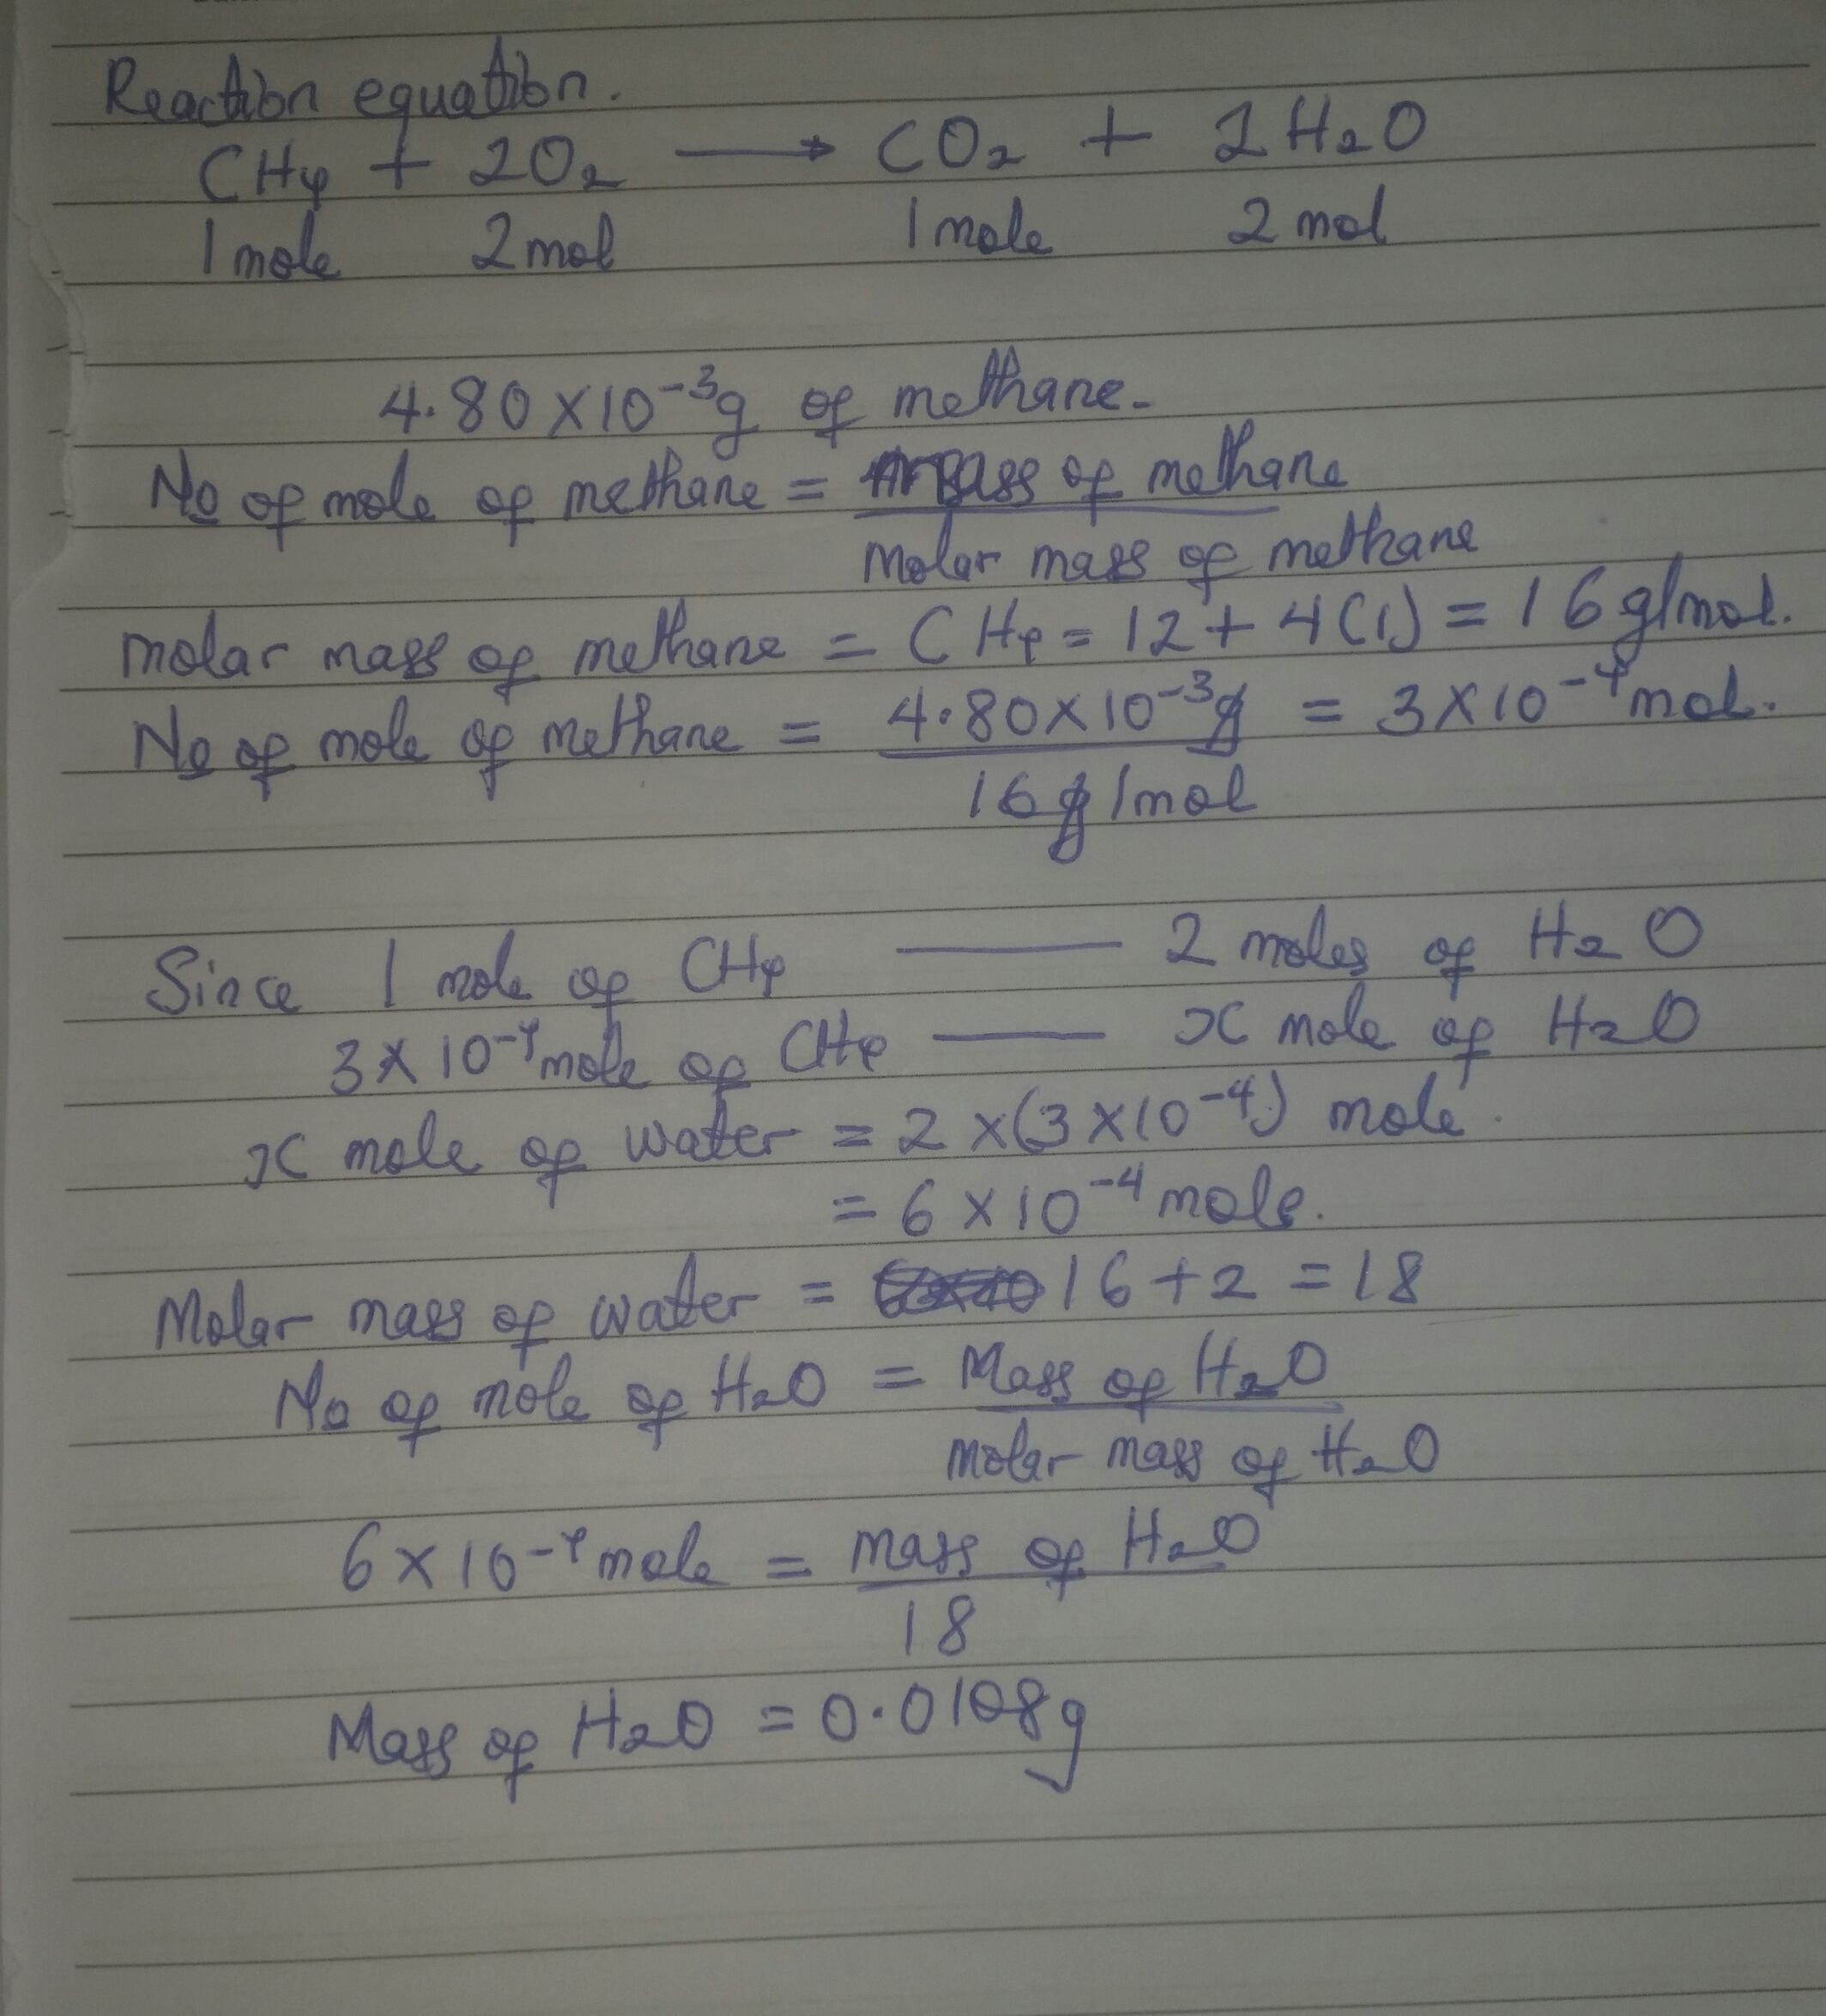 Reaction equation.
CH₄ + 2O₂ → CO₂ + 2H₂O
1 mole 2 mol 1 mole 2 mol
4.80 × 10⁻³g of methane.
No of mole of methane = mass of methane
molar mass of methane
molar mass of methane = CH₄ = 12 + 4(1) = 16 g/mol.
No of mole of methane = 4.80 × 10⁻³g = 3 × 10⁻⁴ mol.
16g/mol
Since 1 mole of CH₄ — 2 moles of H₂O
3 × 10⁻⁴ mole of CH₄ — x mole of H₂O
x mole of water = 2 × (3 × 10⁻⁴) mole.
= 6 × 10⁻⁴ mole.
Molar mass of water = 16 + 2 = 18
No of mole of H₂O = Mass of H₂O
molar mass of H₂O
6 × 10⁻⁴ mole = mass of H₂O
18
Mass of H₂O = 0.0108g